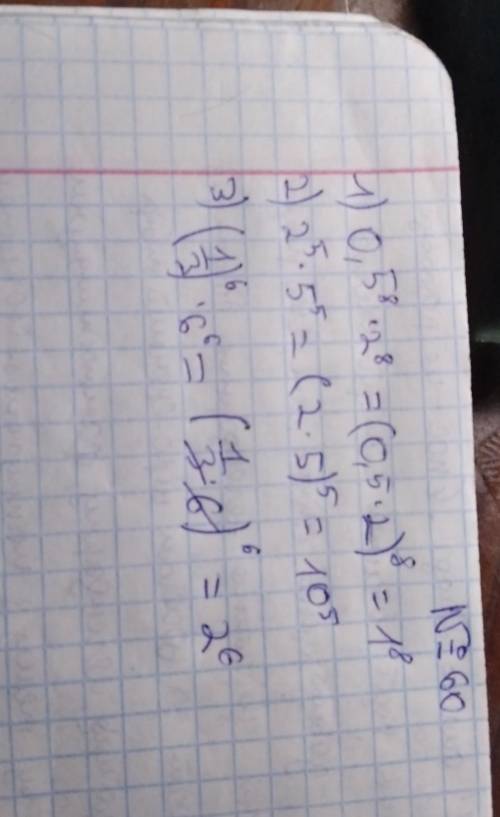 №60
1) 0,5⁸·2⁸ = (0,5·2)⁸ = 1⁸
2) 2⁵·5⁵ = (2·5)⁵ = 10⁵
3) (1/3)⁶·6⁶ = (1/3·6)⁶ = 2⁶